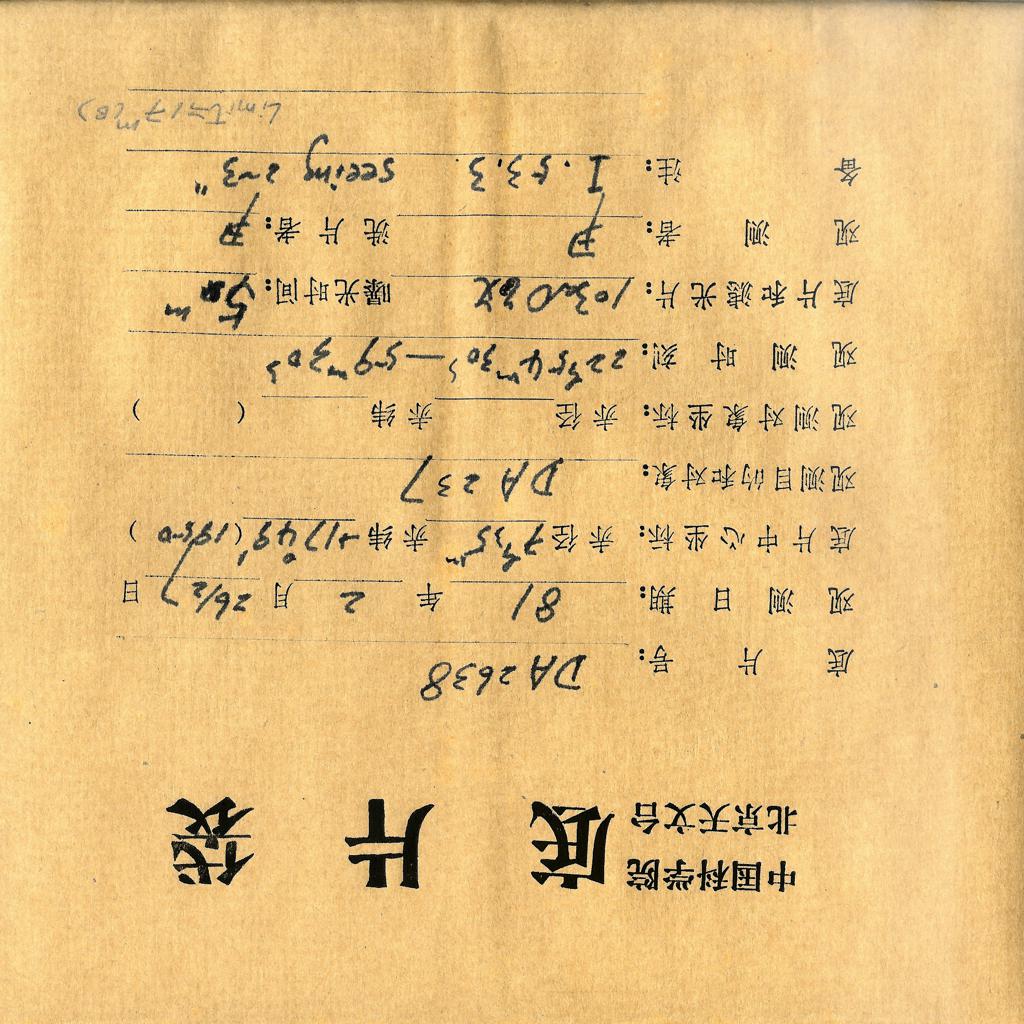 中国科学院
北京天文台 底片袋
底片号: DA2638
观测日期: 81年2月26/27日
底片中心坐标: 赤径7ʰ35ᵐ赤纬+17°49′(1950)
观测目的和对象: DA237
观测对象坐标: 赤径 赤纬 ( )
观测时刻: 22ʰ54ᵐ30ˢ—59ᵐ30ˢ
底片和滤光片: 103aO 曝光时间: 5ᵐ
观测者: 尹 洗片者: 尹
备注: I.53,3. seeing 2~3"
Limit=17ᵐ(B)